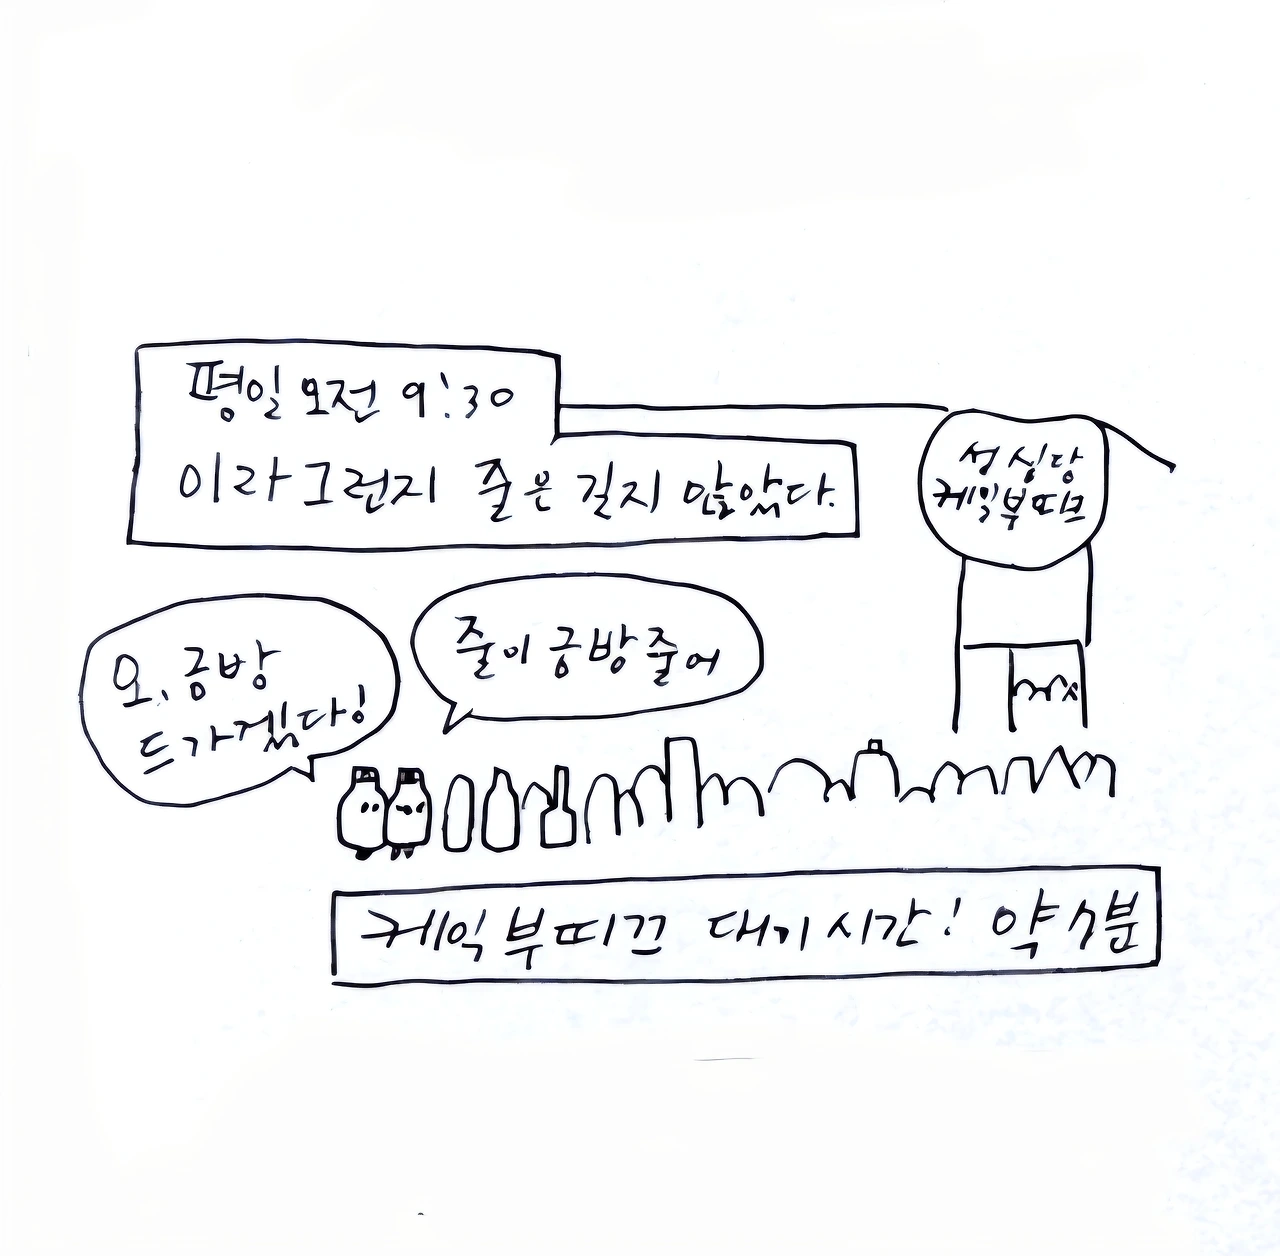 평일 오전 9:30
이라 그런지 줄은 길지 않았다.
성심당
케익부띠끄
오, 금방
드가겠다!
줄이 금방 줄어
케익부띠끄 대기시간: 약 5분